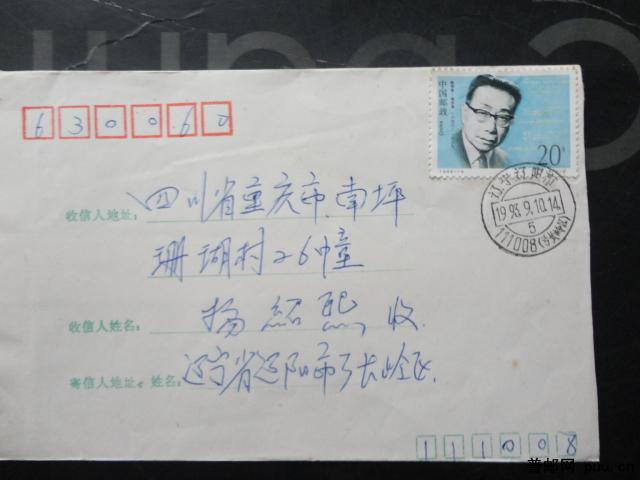 630060
中国邮政
20分
辽宁辽阳
1993.9.10.14
5
111008
收信人地址: 四川省重庆市南坪
珊瑚村26幢
收信人姓名: 杨绍熙 收
寄信人地址、姓名: 辽宁省辽阳市张岭区
111008
普邮网 puu.cn